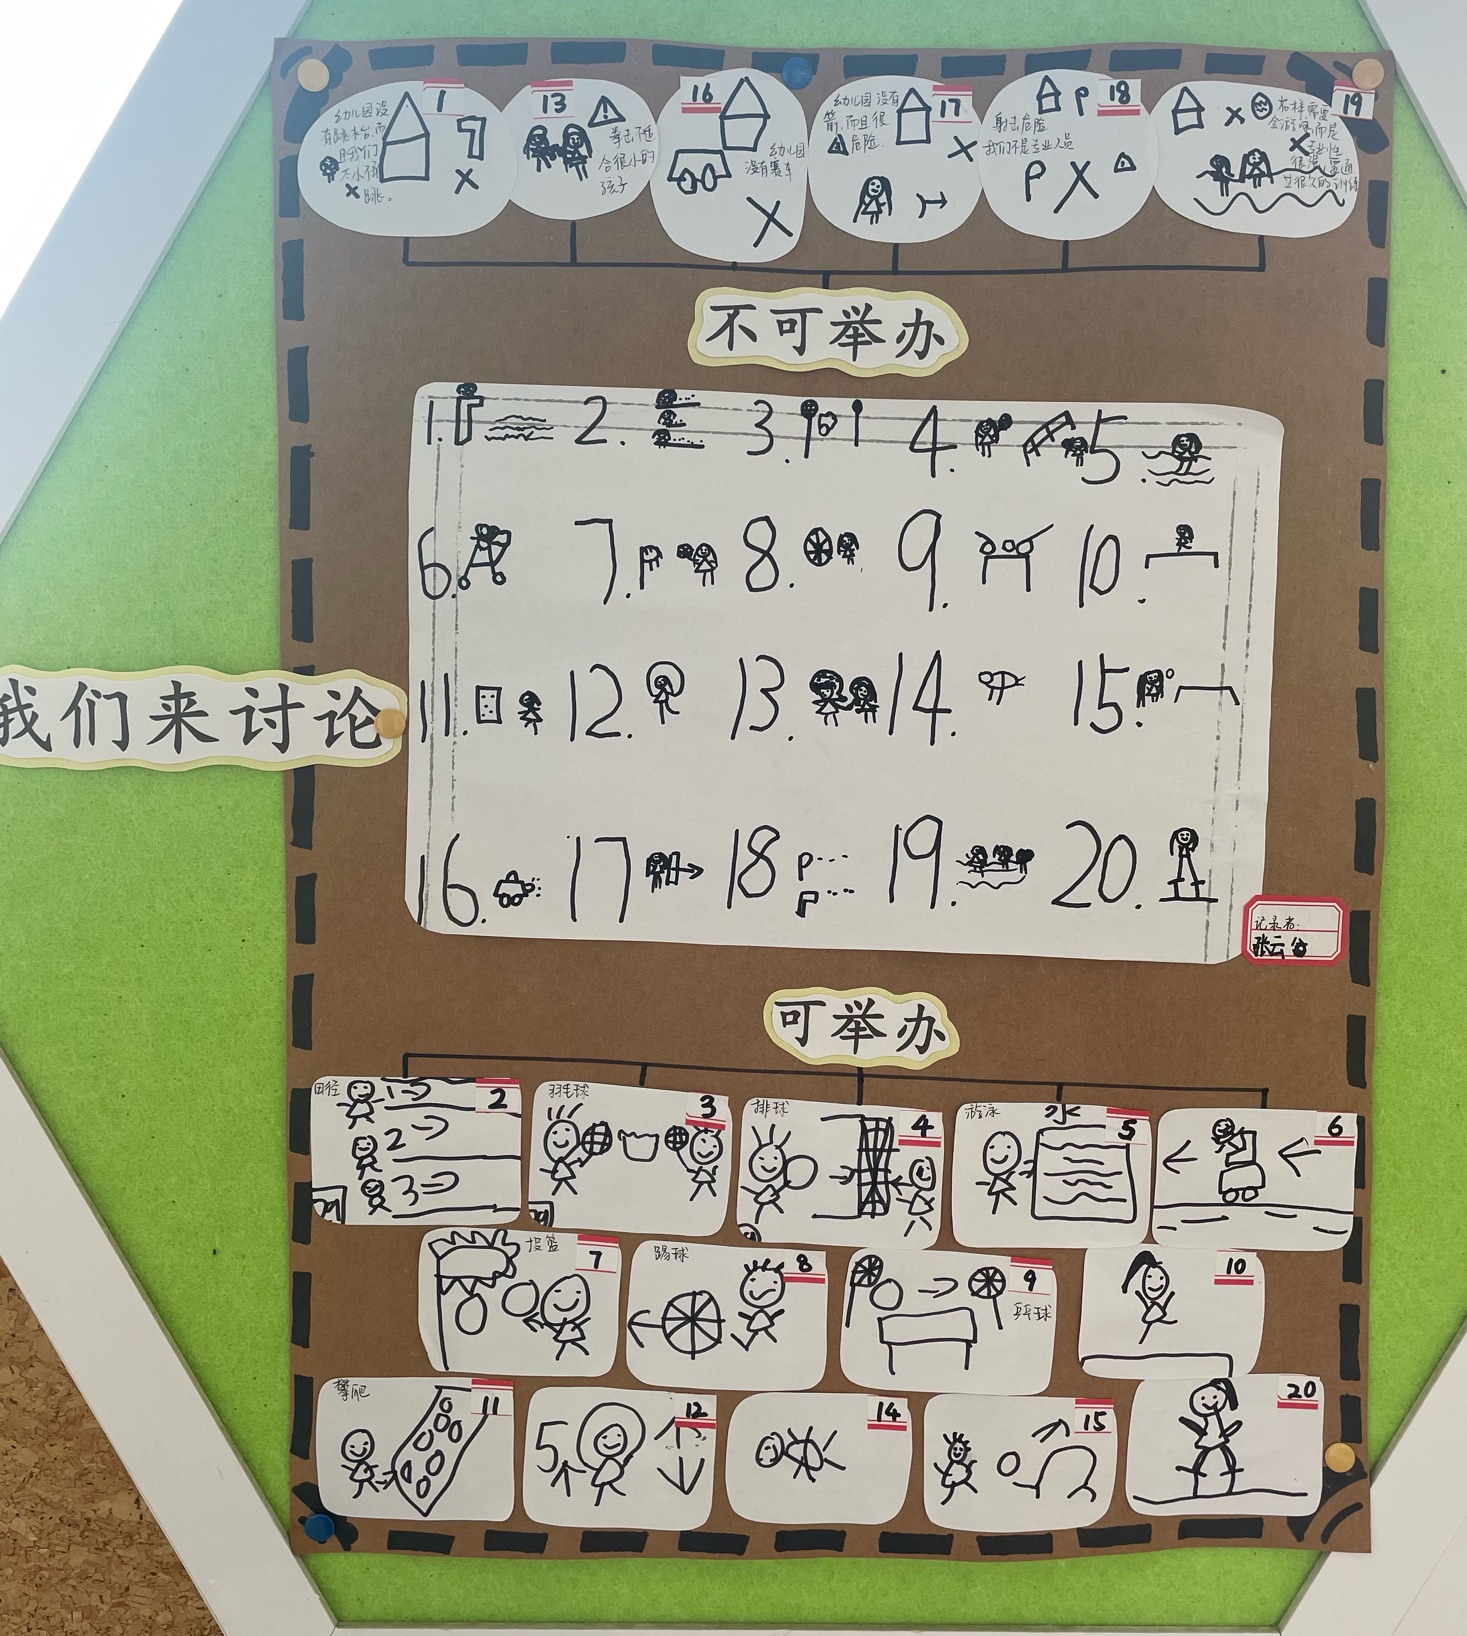 1
幼儿园没
有跳水台,而
且我们
太小不敢
跳。
13
拳击不适
合很小的
孩子
16
幼儿园
没有赛车
17
幼儿园没有
箭,而且很
危险.
18
射击危险
我们不是专业人员
19
花样需要
会游泳,而是
不可举办
1. 2. 3. 4. 5.
6. 7. 8. 9. 10.
11. 12. 13. 14. 15.
16. 17 18 19. 20.
我们来讨论
记录者:
张云
可举办
田径 2
1
2
3
羽毛球 3
排球 4
游泳 水 5
6
投篮 7
踢球 8
9
乒乓球
10
攀爬 11
5 12
14
15
20